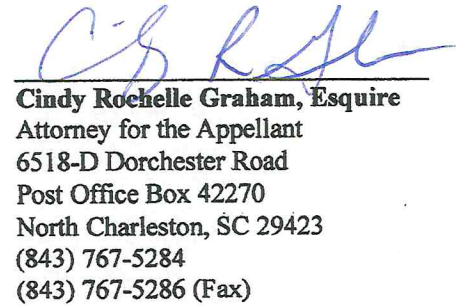 Cindy Rochelle Graham, Esquire
Attorney for the Appellant
6518-D Dorchester Road
Post Office Box 42270
North Charleston, SC 29423
(843) 767-5284
(843) 767-5286 (Fax)